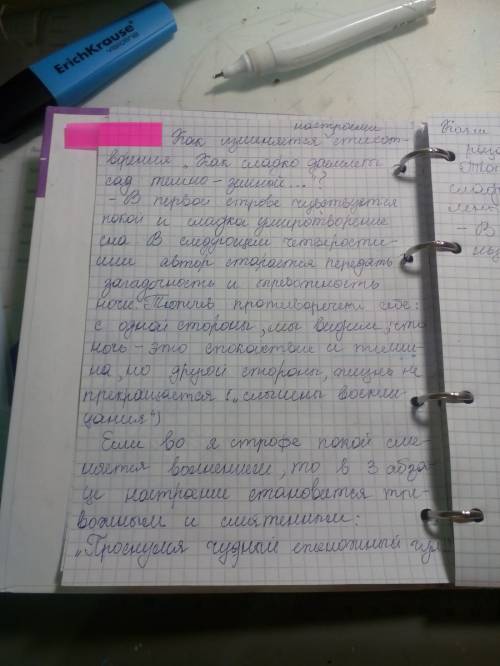 ErichKrause
visicone
настроении
Как изменяется стихот-
ворения „Как сладко дремлет
сад темно-зеленый...“?
- В первой строфе чувствуется
покой и сладкое умиротворение
сна В следующем четверости-
шии автор старается передать
загадочность и
ночи. Тютчев противоречен себе:
с одной стороны, мы видим, что
ночь - это спокойствие и тиши-
на, но другой стороны, жизнь не
прекращается („слышены воскли-
цания“)
Если во я строфе покой сме-
няется волнением, то в 3 абза-
це настроние становится тре-
вожным и смятенным:
„Проснулся чудный еженочный гул
Каки
- В